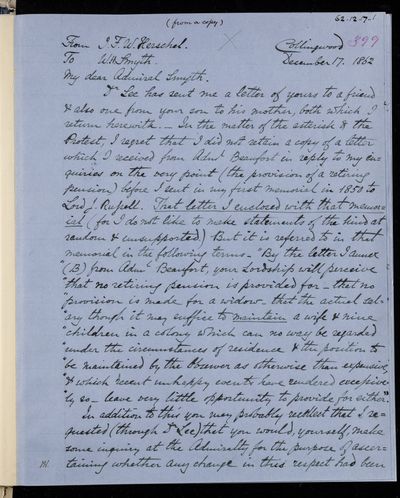 (from a copy)
62.12.17.1
From J. F. W. Herschel.
Collingwood
399
To W. H. Smyth.
December 17. 1862
My dear Admiral Smyth.
Dr Lee has sent me a letter of yours to a friend
& also one from your son to his mother, both which I
return herewith.— In the matter of the asterisk & the
Protest, I regret that I did not retain a copy of a letter
which I received from Adml Beaufort in reply to my en-
quiries on the very point (the provision of a retiring
pension) before I sent in my first memorial in 1850 to
Lord J. Russell. That letter I enclosed with that memor-
ial (for I do not like to make statements of the kind at
random & unsupported) But it is referred to in that
memorial in the following terms— "By the letter I annex
"(B) from Adml Beaufort, your Lordship will perceive
"that no retiring pension is provided for— that no
"provision is made for a widow— that the actual sal-
"ary though it may suffice to maintain a wife & nine
"children in a colony which can no way be regarded
"under the circumstances of residence & the position to
"be maintained by the Observer as otherwise than expensive,
"& which recent unhappy events have rendered excessive-
ly so— leave very little opportunity to provide for either."
In addition to this you may probably recollect that I re-
quested (through Dr Lee) that you would, yourself, make
some inquiry at the Admiralty for the purpose of ascer-
taining whether any change in this respect had been